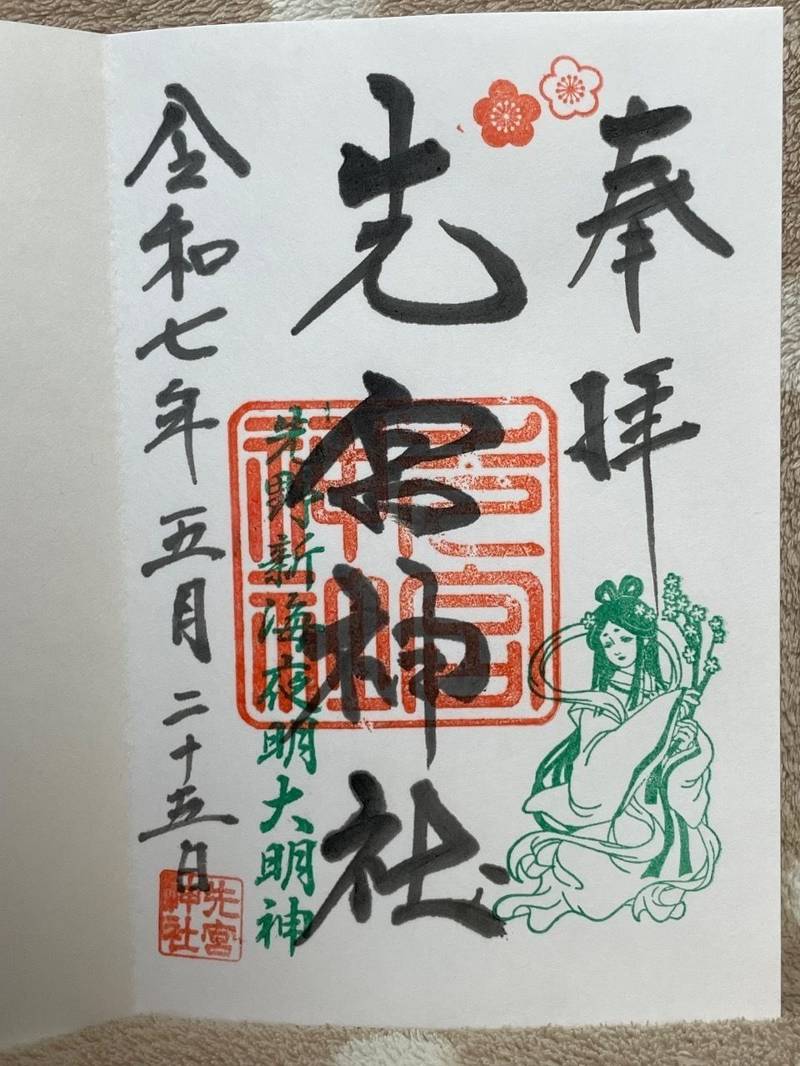 奉拝
先宮神社
先野新海夜明大明神
令和七年五月二十五日
先宮
神社